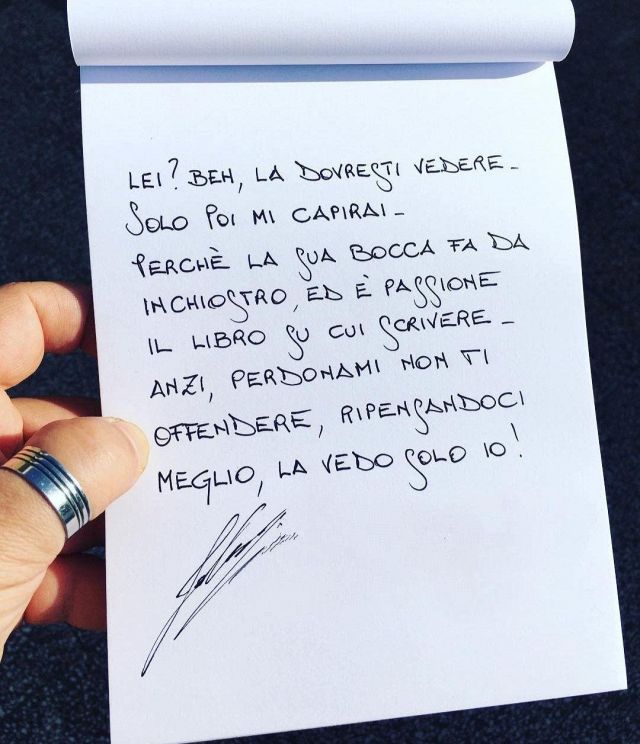 LEI? BEH, LA DOVRESTI VEDERE_
SOLO POI MI CAPIRAI_
PERCHÈ LA SUA BOCCA FA DA
INCHIOSTRO, ED È PASSIONE
IL LIBRO SU CUI SCRIVERE_
ANZI, PERDONAMI NON TI
OFFENDERE, RIPENSANDOCI
MEGLIO, LA VEDO SOLO IO!